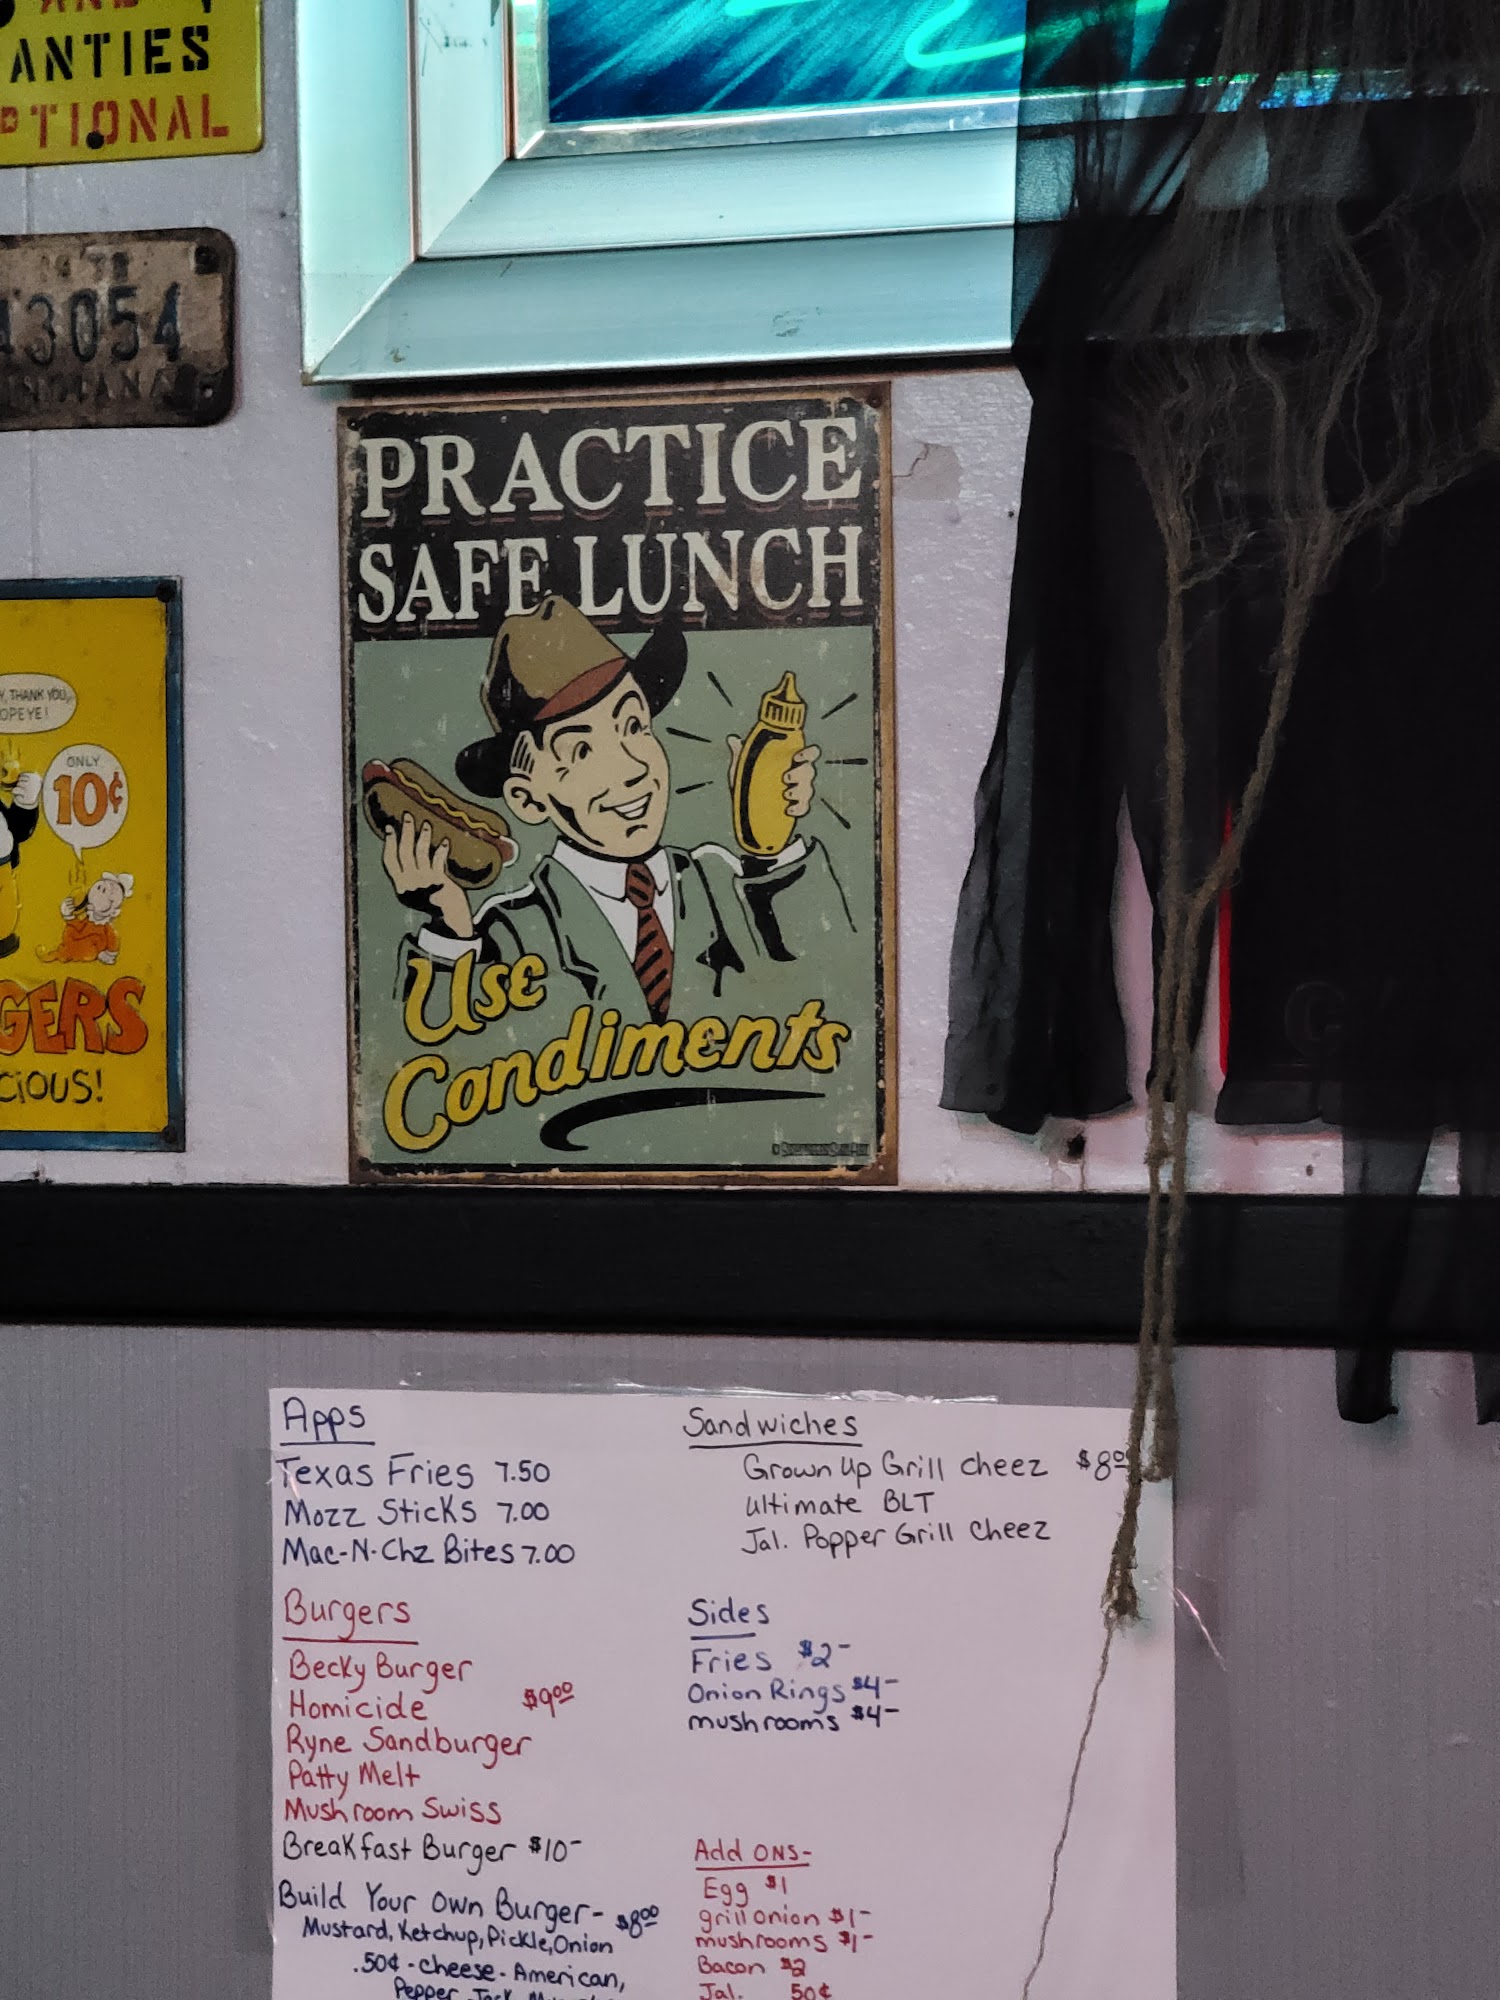 AND
ANTIES
PTIONAL
43054
INDIANA
PRACTICE
SAFE LUNCH
Use
Condiments
Y, THANK YOU,
OPEYE!
ONLY
10¢
GERS
CIOUS!
Apps
Texas Fries 7.50
Mozz Sticks 7.00
Mac-N-Chz Bites 7.00
Burgers
Becky Burger
Homicide $9.00
Ryne Sandburger
Patty Melt
Mushroom Swiss
Breakfast Burger $10-
Build Your Own Burger- $8.00
Mustard, Ketchup, Pickle, Onion
.50¢-cheese-American,
Pepper Jack,
Sandwiches
Grown Up Grill cheez $8.00
Ultimate BLT
Jal. Popper Grill Cheez
Sides
Fries $2-
Onion Rings $4-
mushrooms $4-
Add ONS-
Egg $1
grill onion $1-
mushrooms $1-
Bacon $2
Jal. 50¢